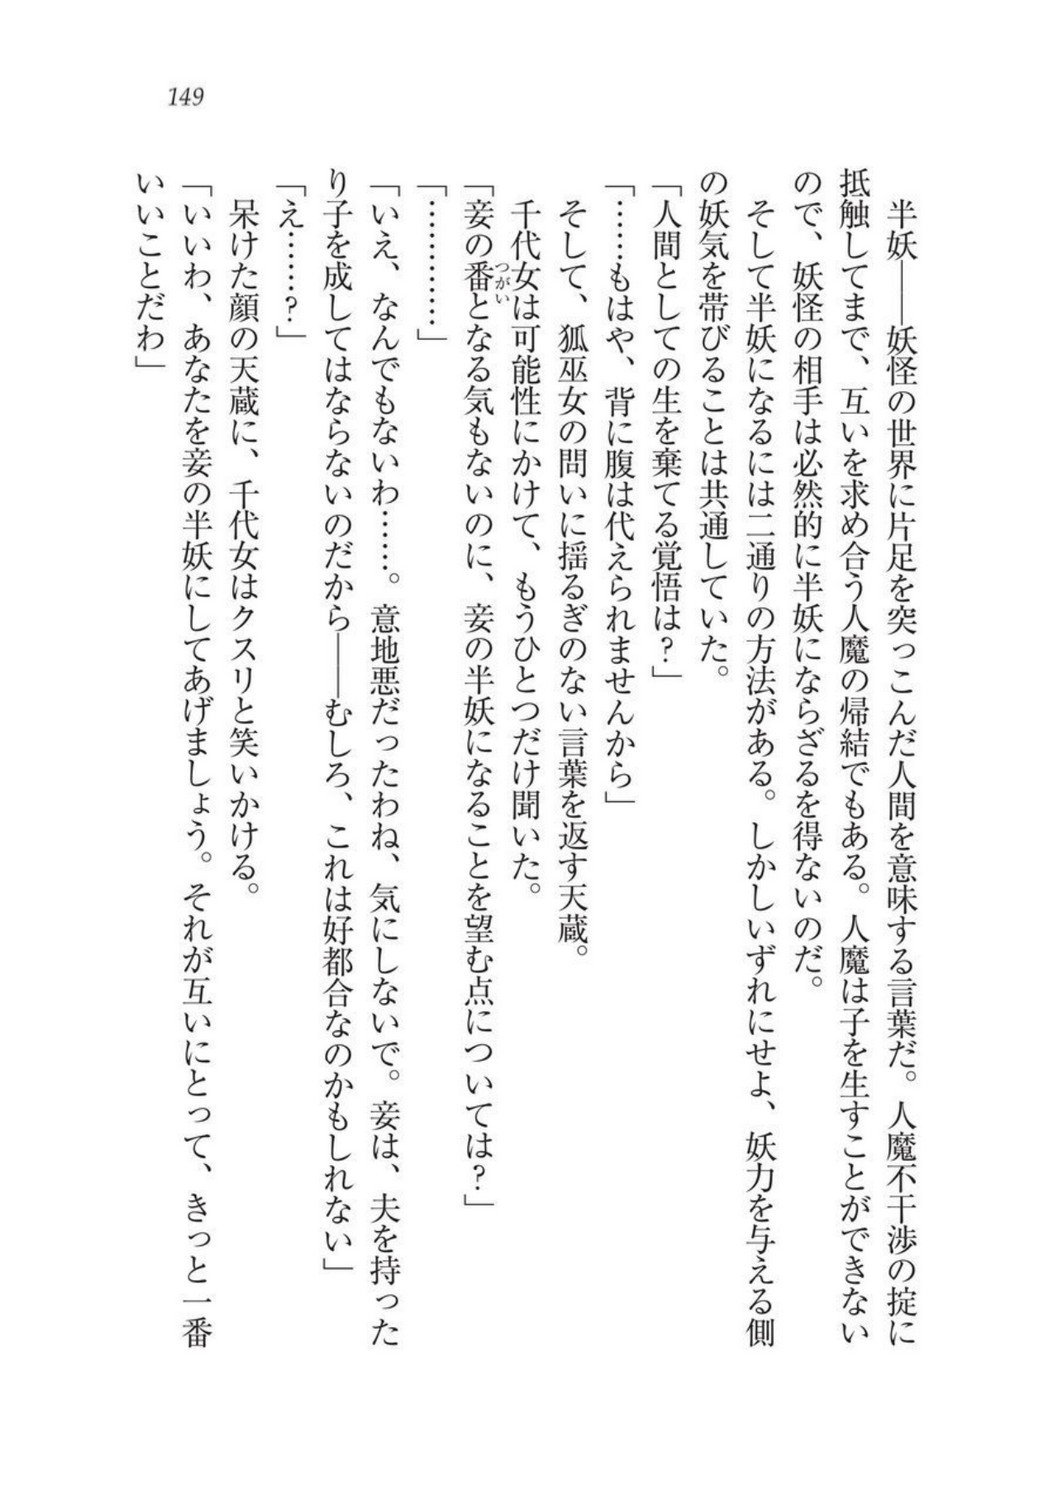 149
半妖――妖怪の世界に片足を突っこんだ人間を意味する言葉だ。人魔不干渉の掟に
抵触してまで、互いを求め合う人魔の帰結でもある。人魔は子を生すことができない
ので、妖怪の相手は必然的に半妖にならざるを得ないのだ。
そして半妖になるには二通りの方法がある。しかしいずれにせよ、妖力を与える側
の妖気を帯びることは共通していた。
「人間としての生を棄てる覚悟は？」
「……もはや、背に腹は代えられませんから」
そして、狐巫女の問いに揺るぎのない言葉を返す天蔵。
千代女は可能性にかけて、もうひとつだけ聞いた。
「妾の番つがいとなる気もないのに、妾の半妖になることを望む点については？」
「…………」
「いえ、なんでもないわ……。意地悪だったわね、気にしないで。妾は、夫を持った
り子を成してはならないのだから――むしろ、これは好都合なのかもしれない」
「え……？」
呆けた顔の天蔵に、千代女はクスリと笑いかける。
「いいわ、あなたを妾の半妖にしてあげましょう。それが互いにとって、きっと一番
いいことだわ」